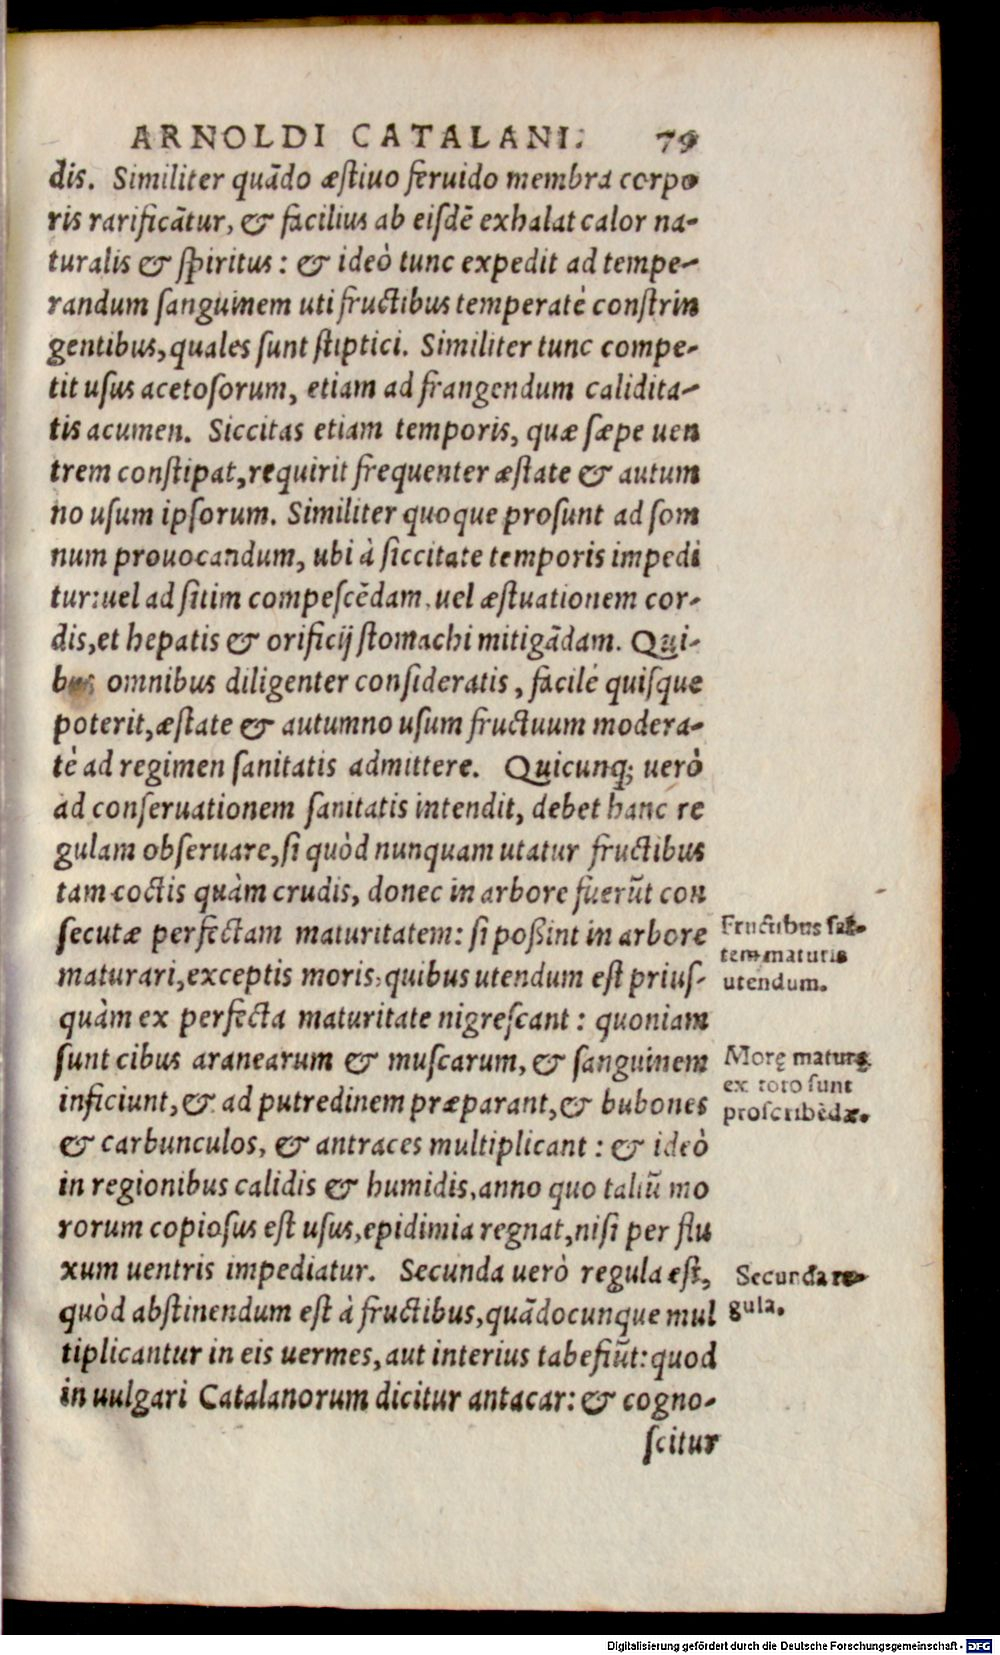 ARNOLDI CATALANI. 79
dis. Similiter quādo æstiuo feruido membra corpo
ris rarificātur, & facilius ab eisdē exhalat calor na-
turalis & spiritus: & ideò tunc expedit ad tempe-
randum sanguinem uti fructibus temperatè constrin
gentibus, quales sunt stiptici. Similiter tunc compe-
tit usus acetosorum, etiam ad frangendum calidita-
tis acumen. Siccitas etiam temporis, quæ sæpe uen
trem constipat, requirit frequenter æstate & autum
no usum ipsorum. Similiter quoque prosunt ad som
num prouocandum, ubi à siccitate temporis impedi
tur: uel ad sitim compescēdam, uel æstuationem cor-
dis, et hepatis & orificij stomachi mitigādam. Qui-
bus omnibus diligenter consideratis, facilè quisque
poterit, æstate & autumno usum fructuum modera-
tè ad regimen sanitatis admittere. Quicunq; uerò
ad conseruationem sanitatis intendit, debet hanc re
gulam obseruare, si quòd nunquam utatur fructibus
tam coctis quàm crudis, donec in arbore fuerūt con
secutæ perfectam maturitatem: si poßint in arbore
Fructibus sal-
tem maturis
utendum.
maturari, exceptis moris, quibus utendum est prius-
quàm ex perfecta maturitate nigrescant: quoniam
sunt cibus aranearum & muscarum, & sanguinem
Morę maturę
ex toto sunt
proscribēdæ.
inficiunt, & ad putredinem præparant, & bubones
& carbunculos, & antraces multiplicant: & ideò
in regionibus calidis & humidis, anno quo taliū mo
rorum copiosus est usus, epidimia regnat, nisi per flu
xum uentris impediatur. Secunda uerò regula est,
Secunda re-
gula.
quòd abstinendum est à fructibus, quādocunque mul
tiplicantur in eis uermes, aut interius tabefiūt: quod
in uulgari Catalanorum dicitur antacar: & cogno-
scitur
Digitalisierung gefördert durch die Deutsche Forschungsgemeinschaft - DFG